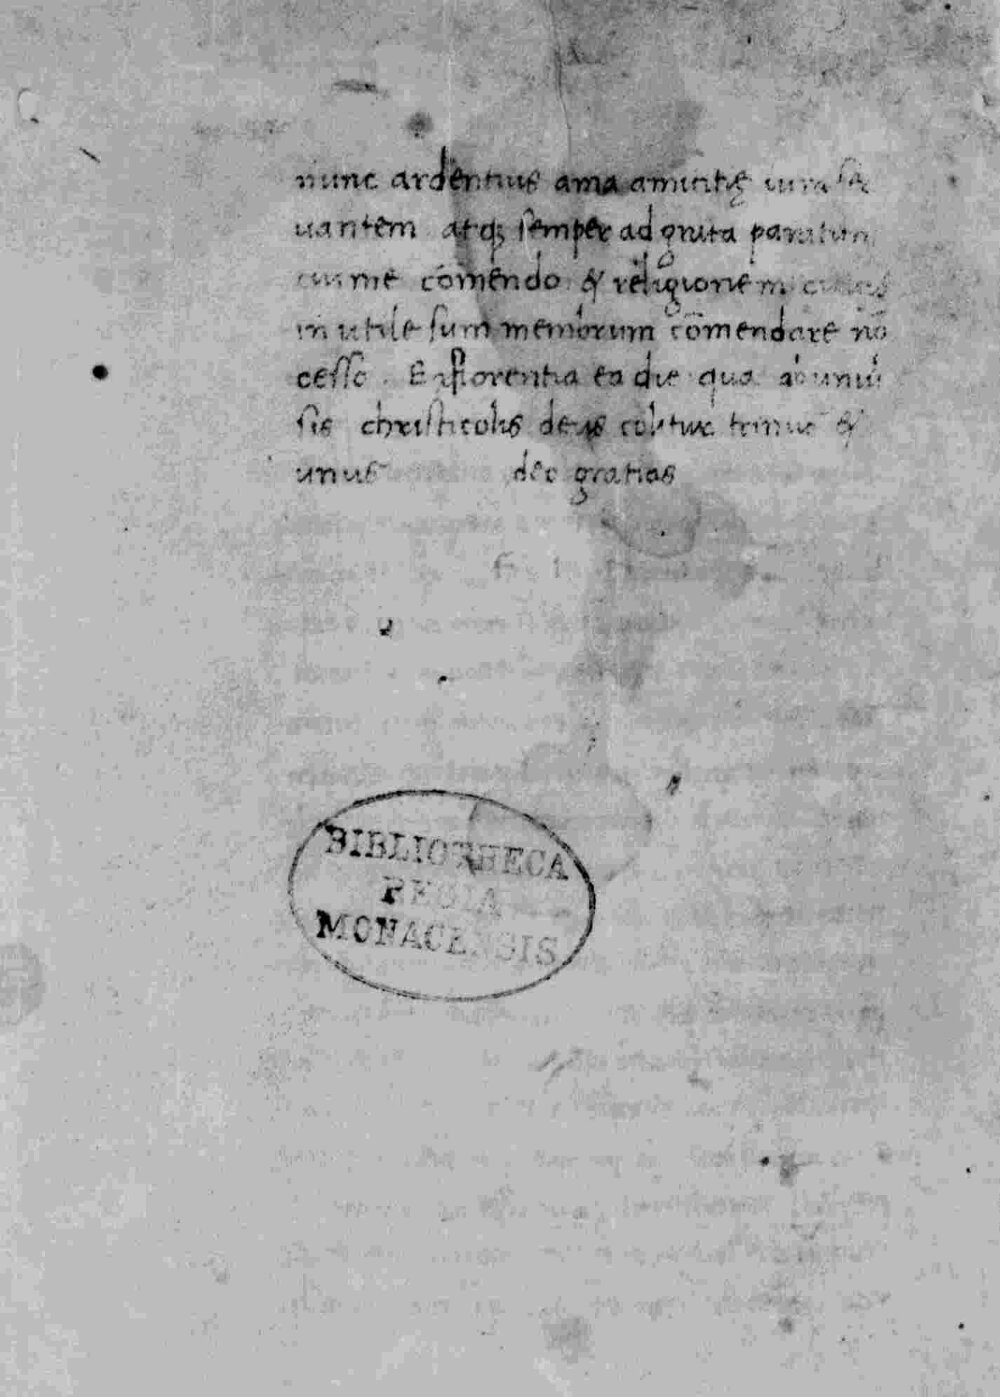 nunc ardentius ama amicitię iura ser
uantem atq; semper ad grata paratum
cui me cōmendo & religionem cuius
inutile sum membrum cōmendare nō
cesso. Ex florentia ea die qua ab uniuer
sis christicolis deus colitur trinus &
unus deo gratias
BIBLIOTHECA
REGIA
MONACENSIS